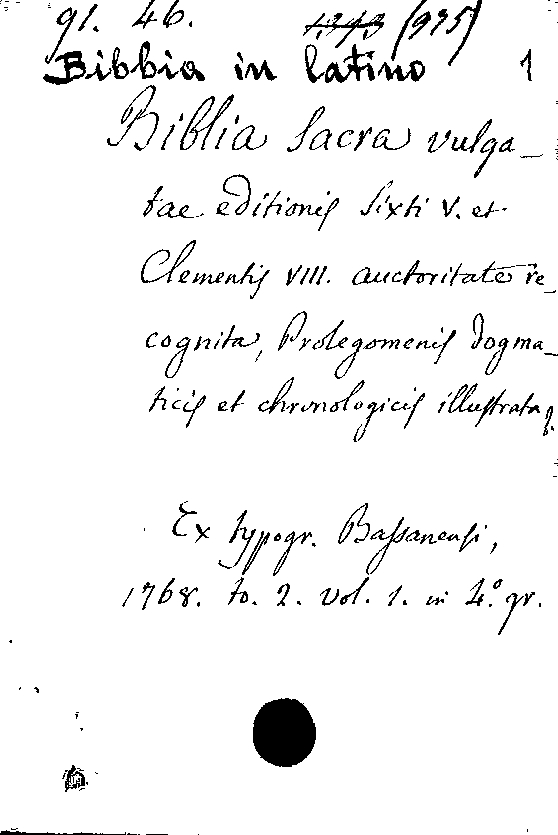 91. 46. 1393 (935)
Bibbia in latino 1
Biblia Sacra vulga_
tae editionis Sixti V. et
Clementis VIII. auctoritate re_
cognita, Prolegomenis dogma_
ticis et chronologicis illustrata.
Ex typogr. Bassanensi,
1768. to. 2. vol. 1. in 4.º gr.